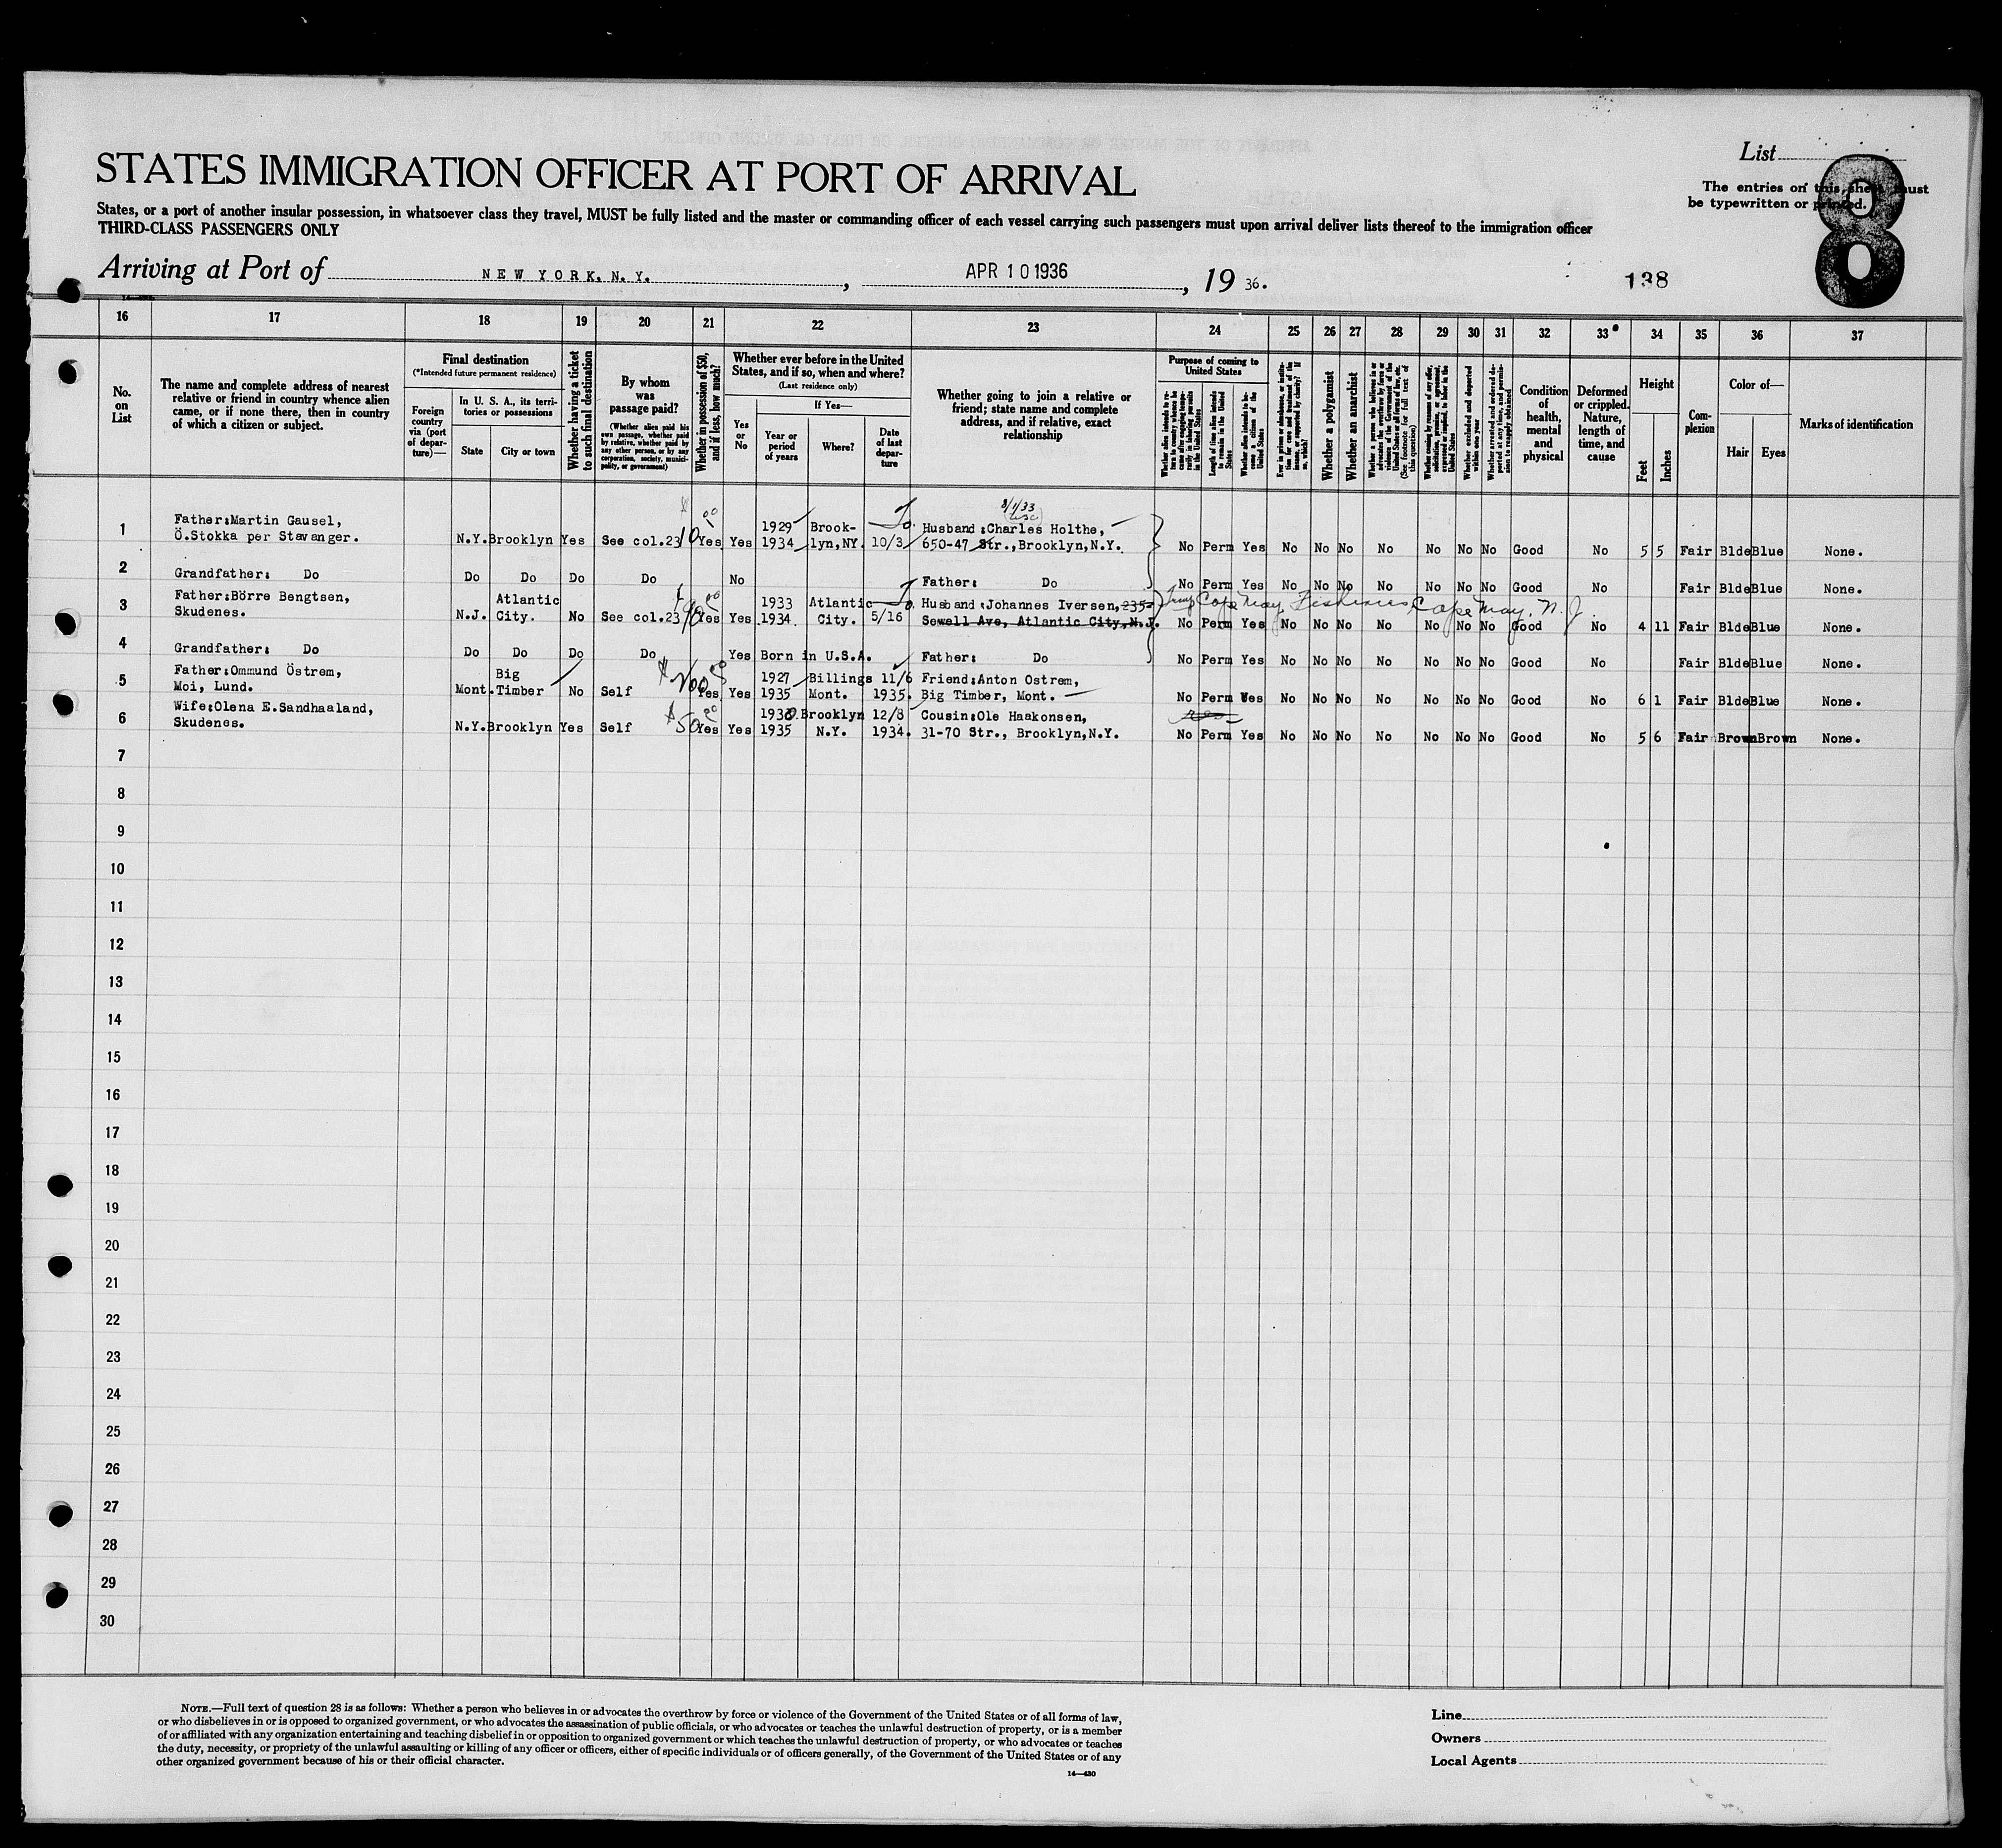 STATES IMMIGRATION OFFICER AT PORT OF ARRIVAL
List
The entries on this sheet must
be typewritten or printed.
8
States, or a port of another insular possession, in whatsoever class they travel, MUST be fully listed and the master or commanding officer of each vessel carrying such passengers must upon arrival deliver lists thereof to the immigration officer
THIRD-CLASS PASSENGERS ONLY
Arriving at Port of NEW YORK, N. Y., APR 10 1936, 19 36.
138
16 17 18 19 20 21 22 23 24 25 26 27 28 29 30 31 32 33 34 35 36 37
No. on List
The name and complete address of nearest
relative or friend in country whence alien
came, or if none there, then in country
of which a citizen or subject.
Final destination
(*Intended future permanent residence)
Foreign country via (port of departure)—
In U. S. A., its territories or possessions
State
City or town
Whether having a ticket to such final destination
By whom was passage paid?
(Whether alien paid his own passage, whether paid by relative, whether paid by any other person, or by any corporation, society, municipality, or government)
Whether in possession of $50, and if less, how much?
Whether ever before in the United
States, and if so, when and where?
(Last residence only)
Yes or No
If Yes—
Year or period of years
Where?
Date of last departure
Whether going to join a relative or
friend; state name and complete
address, and if relative, exact
relationship
Purpose of coming to United States
Length of time alien intends to remain in the United States
Whether alien intends to become a citizen of the United States
Whether a polygamist
Whether an anarchist
Condition of health, mental and physical
Deformed or crippled. Nature, length of time, and cause
Height
Feet
Inches
Complexion
Color of—
Hair
Eyes
Marks of identification
8/1/33
1 Father:Martin Gausel, 1929 Brook- Husband:Charles Holthe,
Ö.Stokka per Stavanger. N.Y. Brooklyn Yes See col.23 Yes Yes 1934 lyn,NY. 10/3 650-47 Str.,Brooklyn,N.Y. No Perm Yes No No No No No No No Good No 5 5 Fair Blde Blue None.
2 Grandfather: Do Do Do Do Do No Father: Do No Perm Yes No No No No No No No Good No Fair Blde Blue None.
3 Father:Börre Bengtsen, Atlantic 1933 Atlantic Husband:Johannes Iversen,235- Cape May Fisheries, Cape May, N.J.
Skudenes. N.J. City. No See col.23 Yes Yes 1934. City. 5/16 Sewell Ave, Atlantic City,N.J. No Perm Yes No No No No No No No Good No 4 11 Fair Blde Blue None.
4 Grandfather: Do Do Do Do Do Yes Born in U.S.A. Father: Do No Perm Yes No No No No No No No Good No Fair Blde Blue None.
5 Father:Ommund Östrem, Big 1927 Billings 11/6 Friend:Anton Ostrem,
Moi, Lund. Mont. Timber No Self Yes Yes 1935 Mont. 1935. Big Timber, Mont. No Perm Yes No No No No No No No Good No 6 1 Fair Blde Blue None.
6 Wife:Olena E.Sandhaaland, 1930. Brooklyn 12/8 Cousin:Ole Haakonsen,
Skudenes. N.Y. Brooklyn Yes Self $50 Yes Yes 1935 N.Y. 1934. 31-70 Str., Brooklyn,N.Y. No Perm Yes No No No No No No No Good No 5 6 Fair Brown Brown None.
7
8
9
10
11
12
13
14
15
16
17
18
19
20
21
22
23
24
25
26
27
28
29
30
NOTE.—Full text of question 28 is as follows: Whether a person who believes in or advocates the overthrow by force or violence of the Government of the United States or of all forms of law,
or who disbelieves in or is opposed to organized government, or who advocates the assassination of public officials, or who advocates or teaches the unlawful destruction of property, or is a member
of or affiliated with any organization entertaining and teaching disbelief in or opposition to organized government or which teaches the unlawful destruction of property, or who advocates or teaches
the duty, necessity, or propriety of the unlawful assaulting or killing of any officer or officers, either of specific individuals or of officers generally, of the Government of the United States or of any
other organized government because of his or their official character.
14—430
Line
Owners
Local Agents